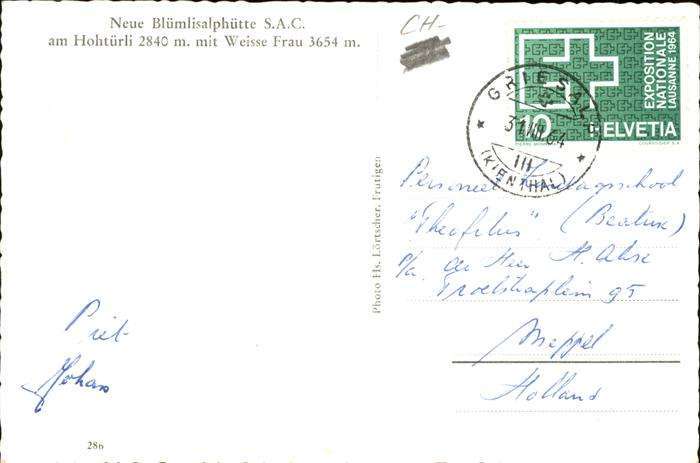 Neue Blümlisalphütte S.A.C.
am Hohtürli 2840 m. mit Weisse Frau 3654 m.
CH-
EXPOSITION
NATIONALE
LAUSANNE 1964
10 HELVETIA
GRIESALP
31.VII.64
III
(KIENTHAL)
Photo Hs. Lörtscher, Frutigen
Personeel Zondagsschool
"Theofilus" (Beatrix)
p/a. de Heer H.
Troelstraplein 95
Meppel
Holland
Piet
Johan
286